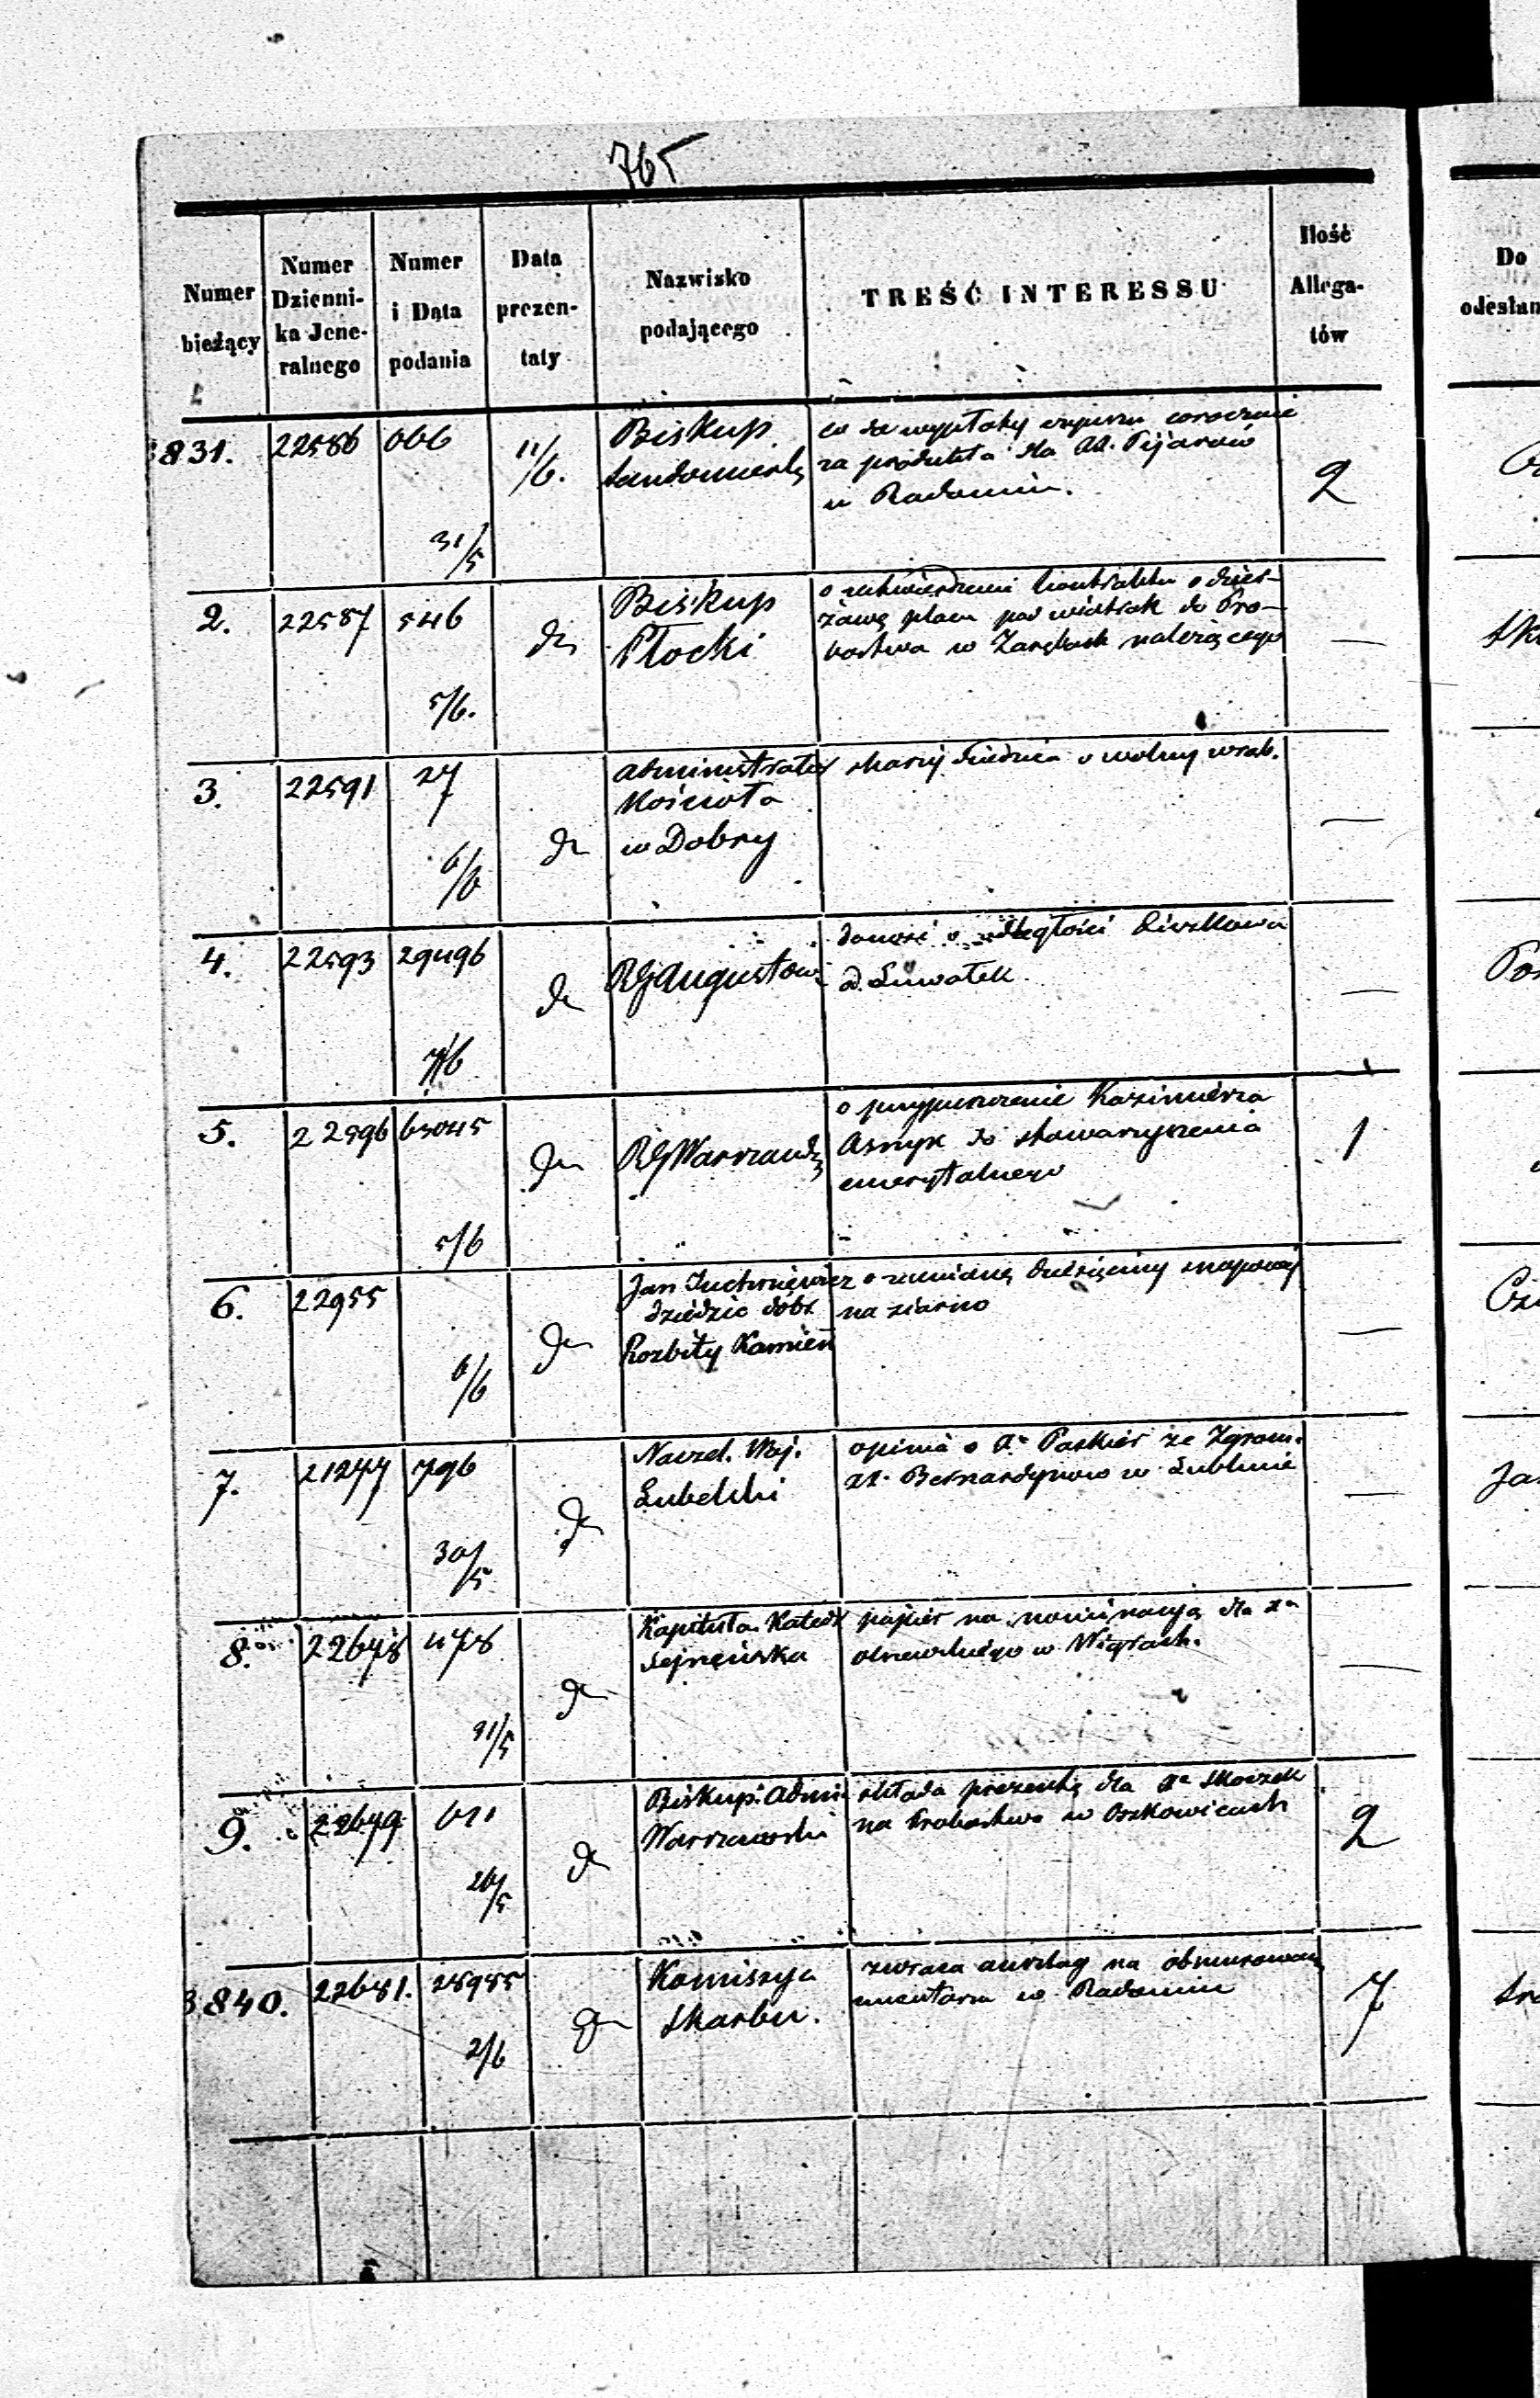 765
Numer bieżący
Numer Dzienni-ka Jene-ralnego
Numer i Data podania
Data prezen-taty
Nazwisko podającego
TREŚĆ INTERESSU
Ilość Allega-tów
Do
odesłan
831. 22586 666 31/5 11/6.
Biskup
Sandomierski
co do wypłaty
za produkta dla XX. Pijarów
w Radomiu.
2
2. 22587 546 5/6. do
Biskup
Płocki
o zatwierdzenie kontraktu o dzier-
żawę placu pod wiatrak do Pro-
bostwa w Zarębach należącego
—
3. 22591 27 6/6 do
Administrator
Kościoła
w Dobry
o wolny wrąb.
—
4. 22593 29496 7/6 do
RG Augustow.
donosi o odległości
od Suwałek
—
5. 22596 63045 5/6 do
RG Warszawski
o przypuszczenie Kazimierza
Asnyk do stowarzyszenia
emerytalnego
1
6. 22955 6/6 do
Jan
dziedzic dóbr
Rozbity Kamień
o zamianę dziesięciny snopowej
na ziarno
—
7. 21277 796 30/5 do
Naczel. Woj.
Lubelski
opinia o Xe Paskier ze Zgrom.
XX. Bernardynów w Lublinie
—
8. 22648 478 31/5 do
Kapituła Kated
Sejneńska
papier na nominacyą dla Xa
w Wigrach.
—
9. 22679 611 26/5 do
Biskup. Admi
Warszawski
składa prezentę dla Xa Skoczek
na Probostwo w Oszkowicach
2
3840. 22681. 28985 2/6 do
Komissya
Skarbu.
zwraca anszlag na obmurowan
cmentarza w Radomiu
7